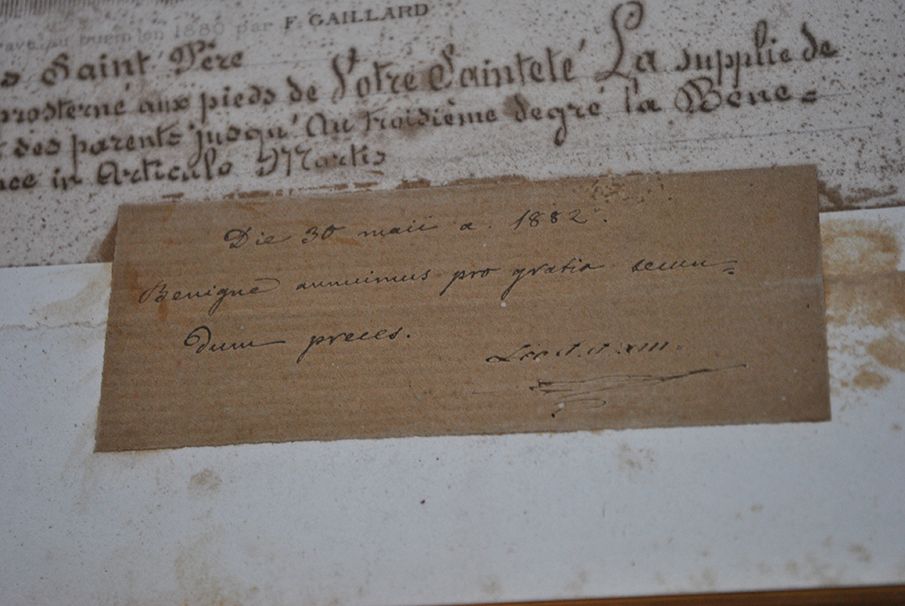 gravé au burin en 1880 par F. GAILLARD
Saint Père
prosterné aux pieds de Votre Sainteté La supplie de
des parents jusqu'Au troisième degré la Béné=
in Articulo Mortis
Die 30 maii a. 1882.
Benigne annuimus pro gratia secun=
dum preces.
Leo P.P. XIII.